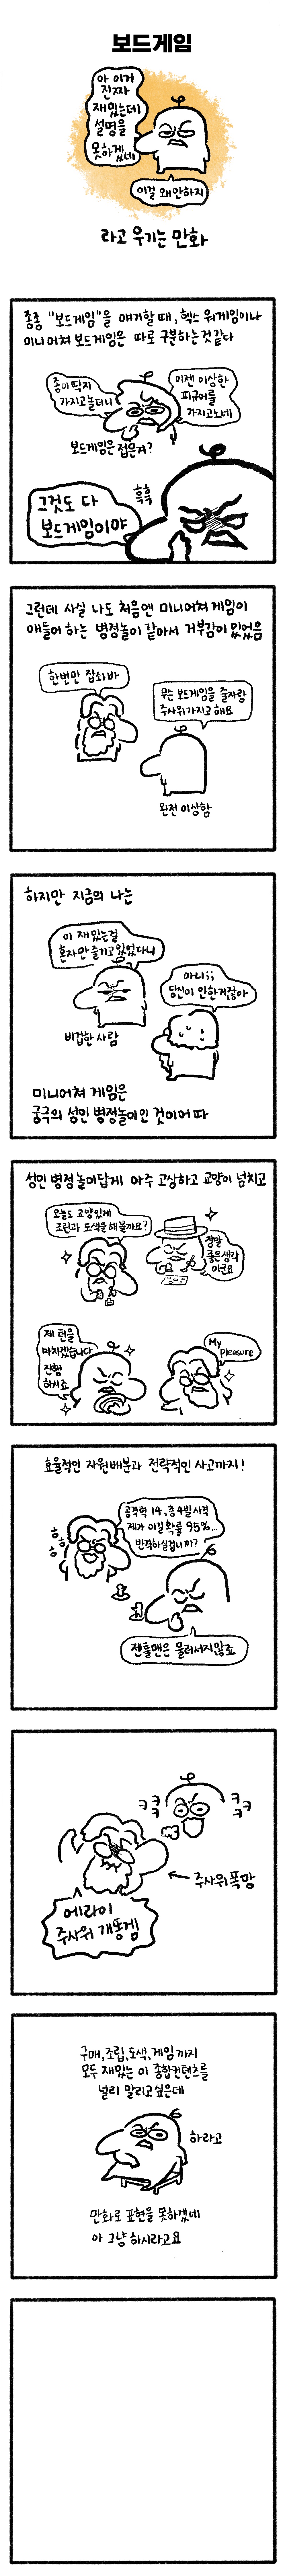 보드게임
아 이거
진짜
재밌는데
설명을
못하겠네
이걸 왜안하지
라고 우기는 만화
종종 "보드게임"을 얘기할 때, 헥스 워게임이나
미니어쳐 보드게임은 따로 구분하는것 같다
종이딱지
가지고놀더니
이젠 이상한
피규어를
가지고노네
보드게임은 접은거?
흑흑
그것도 다
보드게임이야
그런데 사실 나도 처음엔 미니어쳐 게임이
애들이 하는 병정놀이 같아서 거부감이 있었음
한번만 잡숴바
무슨 보드게임을 줄자랑
주사위가지고 해요
완전 이상함
하지만 지금의 나는
이 재밌는걸
혼자만 즐기고 있었다니
아니;;
당신이 안한거잖아
비겁한 사람
미니어쳐 게임은
궁극의 성인 병정놀이인 것이어따
성인 병정놀이답게 아주 고상하고 교양이 넘치고
오늘도 교양있게
조립과 도색을 해볼까요?
정말
좋은생각
이군요
제 턴을
마치겠습니다
진행
하시죠
My
pleasure
효율적인 자원배분과 전략적인 사고까지!
공격력 14, 총 4발 사격
제가 이길 확률 95%...
반격하실겁니까?
젠틀맨은 물러서지않죠
ㅋㅋㅋ
ㅋㅋㅋ
← 주사위폭망
에라이
주사위 개똥겜
구매,조립,도색,게임까지
모두 재밌는 이 종합컨텐츠를
널리 알리고싶은데
하라고
만화로 표현을 못하겠네
아 그냥 하시라고요